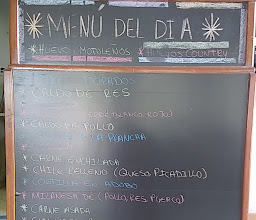 MENÚ DEL DIA
* HUEVOS MOTULEÑOS * HUEVOS COUNTRY
* CALDO DE RES
BLANCO, ROJO)
* CALDO DE POLLO
A LA PLANCHA
* CARNE ENCHILADA
* CHILE RELLENO (QUESO, PICADILLO)
EN ADOBO
* MILANESA DE (POLLO, RES, PUERCO)
* CARNE ASADA